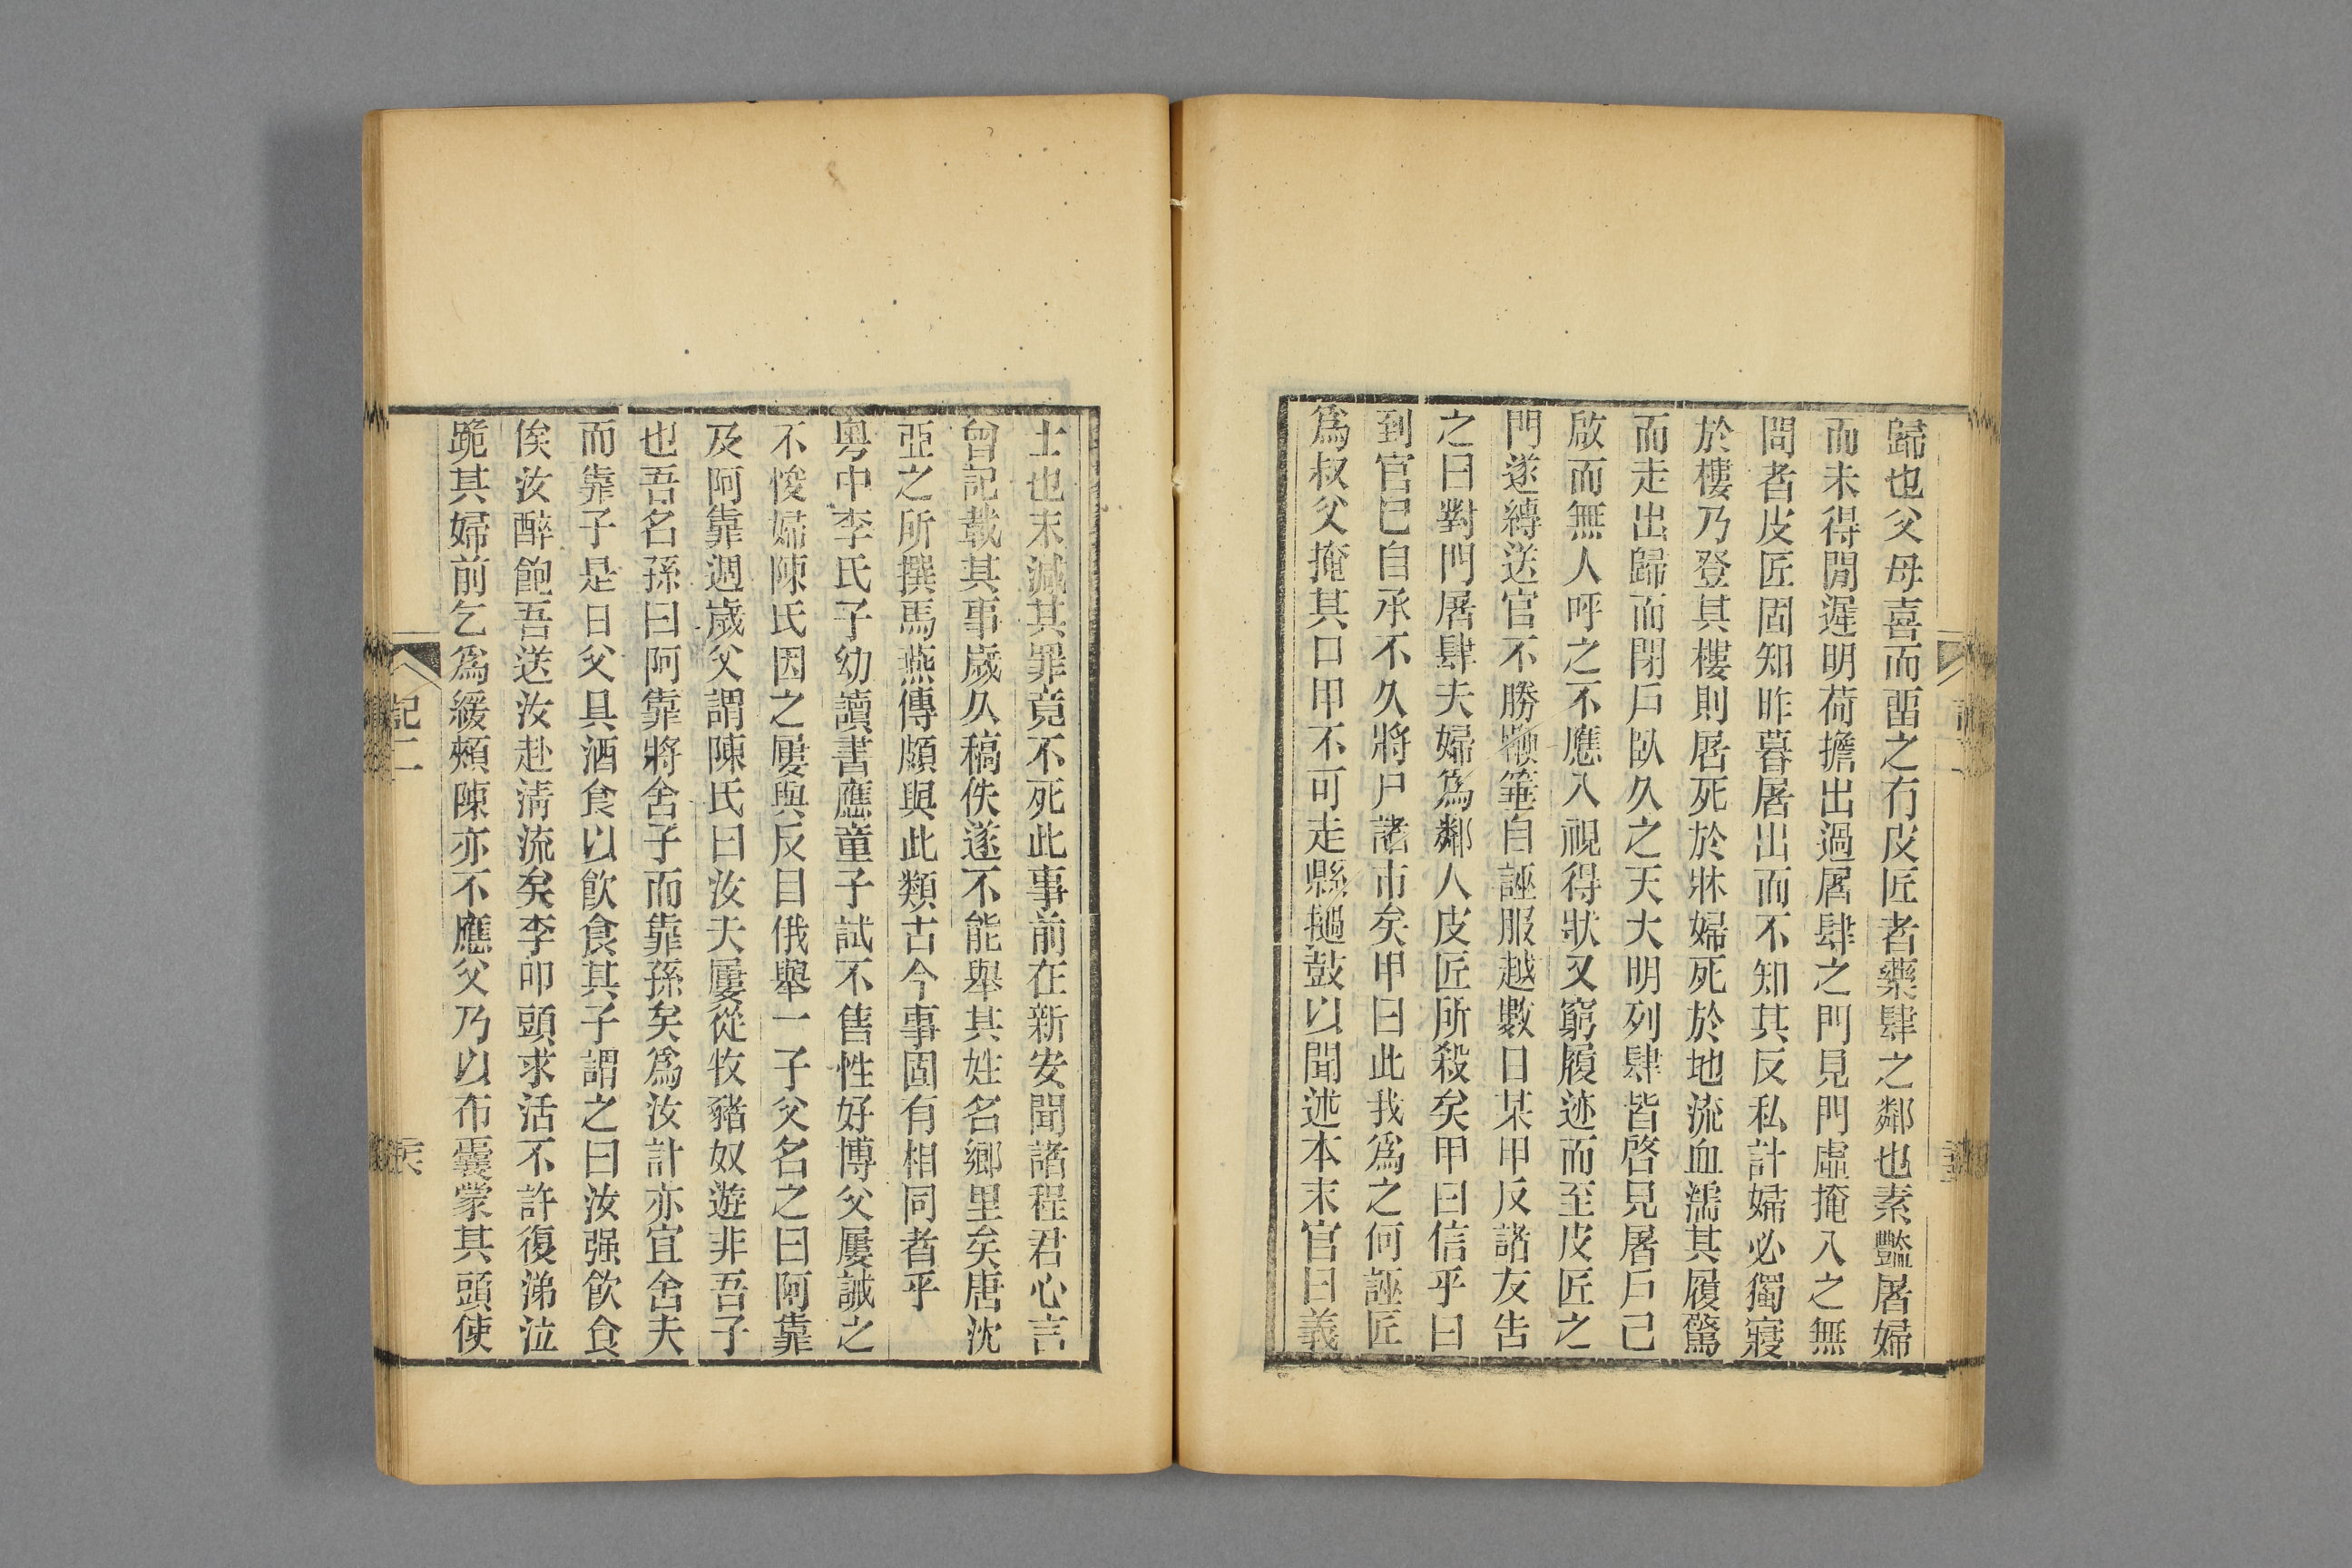 歸也父母喜而畱之有皮匠者藥肆之鄰也素豔屠婦
而未得閒遲明荷擔出過屠肆之門見門虛掩入之無
問者皮匠固知昨暮屠出而不知其反私計婦必獨寢
於樓乃登其樓則屠死於牀婦死於地流血濡其履驚
而走出歸而閉戶臥久之天大明列肆皆啓見屠戶己
啟而無人呼之不應入視得狀又窮履迹而至皮匠之
門遂縳送官不勝搒箠自誣服越數日某甲反諸友告
之曰對門屠肆夫婦爲鄰人皮匠所殺矣甲曰信乎曰
到官已自承不久將尸諸市矣甲曰此我爲之何誣匠
爲叔父掩其口甲不可走縣撾鼓以聞述本末官曰義
士也末減其罪竟不死此事前在新安聞諸程君心言
曾記載其事歲久稿佚遂不能舉其姓名鄉里矣唐沈
亞之所撰馮燕傳頗與此類古今事固有相同者乎
粵中李氏子幼讀書應童子試不售性好博父屢誡之
不悛婦陳氏因之屢與反目俄舉一子父名之曰阿靠
及阿靠週歲父謂陳氏曰汝夫屢從牧豬奴遊非吾子
也吾名孫曰阿靠將舍子而靠孫矣爲汝計亦宜舍夫
而靠子是日父具酒食以飮食其子謂之曰汝强飮食
俟汝醉飽吾送汝赴淸流矣李叩頭求活不許復涕泣
跪其婦前乞爲緩頰陳亦不應父乃以布囊蒙其頭使
記二